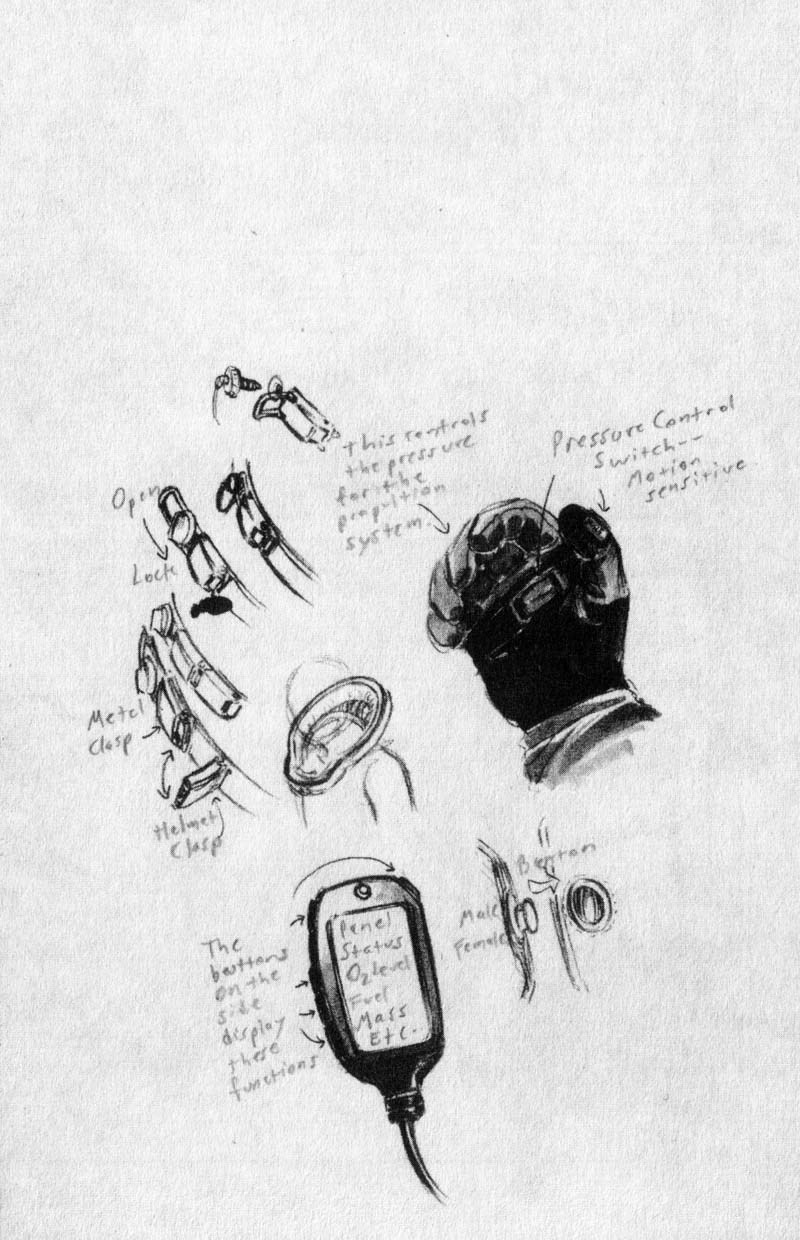 This controls
the pressure
for the
propultion
system.
Pressure Control
Switch--
Motion
sensitive
Open
Lock
Metal
Clasp
Helmet
Clasp
Button
Male
Female
The
buttons
on the
side
display
these
functions
Panel
Status
O2 level
Fuel
Mass
Etc.